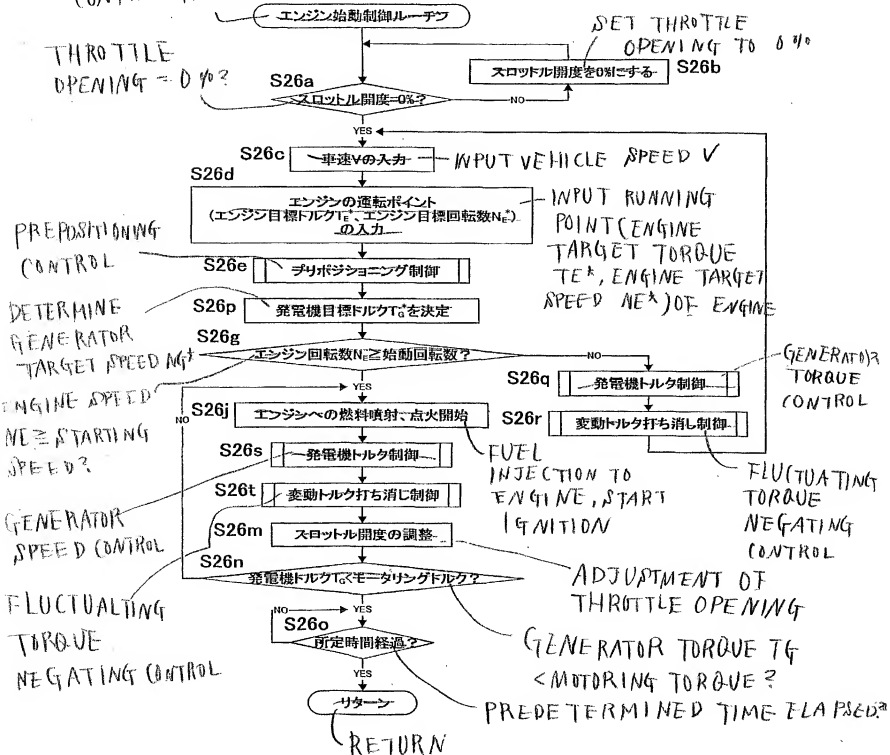 エンジン始動制御ルーチン
THROTTLE
OPENING = 0%?
SET THROTTLE
OPENING TO 0%
スロットル開度を0%にする
S26b
S26a
スロットル開度=0%?
NO
YES
S26c
車速Vの入力
INPUT VEHICLE SPEED V
S26d
エンジンの運転ポイント
(エンジン目標トルクTE*、エンジン目標回転数NE*)
の入力
INPUT RUNNING
POINT (ENGINE
TARGET TORQUE
TE*, ENGINE TARGET
SPEED NE*) OF ENGINE
PREPOSITIONING
CONTROL
S26e
プリポジショニング制御
DETERMINE
GENERATOR
TARGET SPEED NG*
S26p
発電機目標トルクTG*を決定
S26g
エンジン回転数NE≧始動回転数?
NO
YES
ENGINE SPEED
NE≧STARTING
SPEED?
S26q
発電機トルク制御
GENERATOR
TORQUE
CONTROL
S26r
変動トルク打ち消し制御
FLUCTUATING
TORQUE
NEGATING
CONTROL
NO
S26j
エンジンへの燃料噴射、点火開始
FUEL
INJECTION TO
ENGINE, START
IGNITION
S26s
発電機トルク制御
GENERATOR
SPEED CONTROL
S26t
変動トルク打ち消し制御
FLUCTUALTING
TORQUE
NEGATING CONTROL
S26m
スロットル開度の調整
ADJUSTMENT OF
THROTTLE OPENING
S26n
発電機トルクTG<モータリングトルク?
GENERATOR TORQUE TG
<MOTORING TORQUE?
NO
YES
S26o
所定時間経過?
PREDETERMINED TIME ELAPSED?
YES
リターン
RETURN